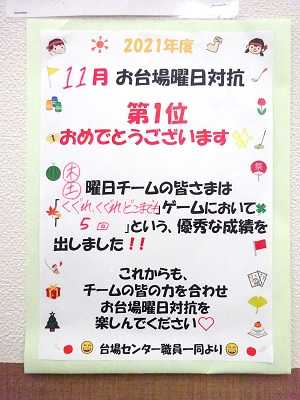 2021年度
11月 お台場曜日対抗
第1位
おめでとうございます
木
土 曜日チームの皆さまは
「くぐれ、くぐれどこまでも」ゲームにおいて
「 5回 」という、優秀な成績を
出しました!!
祭
これからも、
チームの皆の力を合わせ
お台場曜日対抗を
楽しんでください♡
台場センター職員一同より